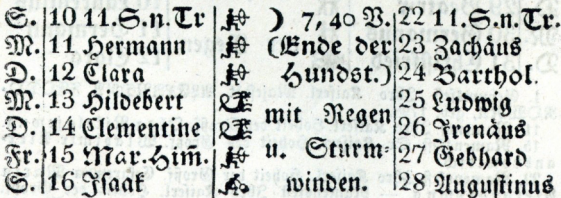 S. 10 11.S.n.Tr ☽ 7,40 V. 22 11.S.n.Tr.
M. 11 Hermann (Ende der 23 Zachäus
D. 12 Clara Hundst.) 24 Barthol.
M. 13 Hildebert mit Regen 25 Ludwig
D. 14 Clementine 26 Irenäus
Fr. 15 Mar.Him. u. Sturm- 27 Gebhard
S. 16 Isaak winden. 28 Augustinus